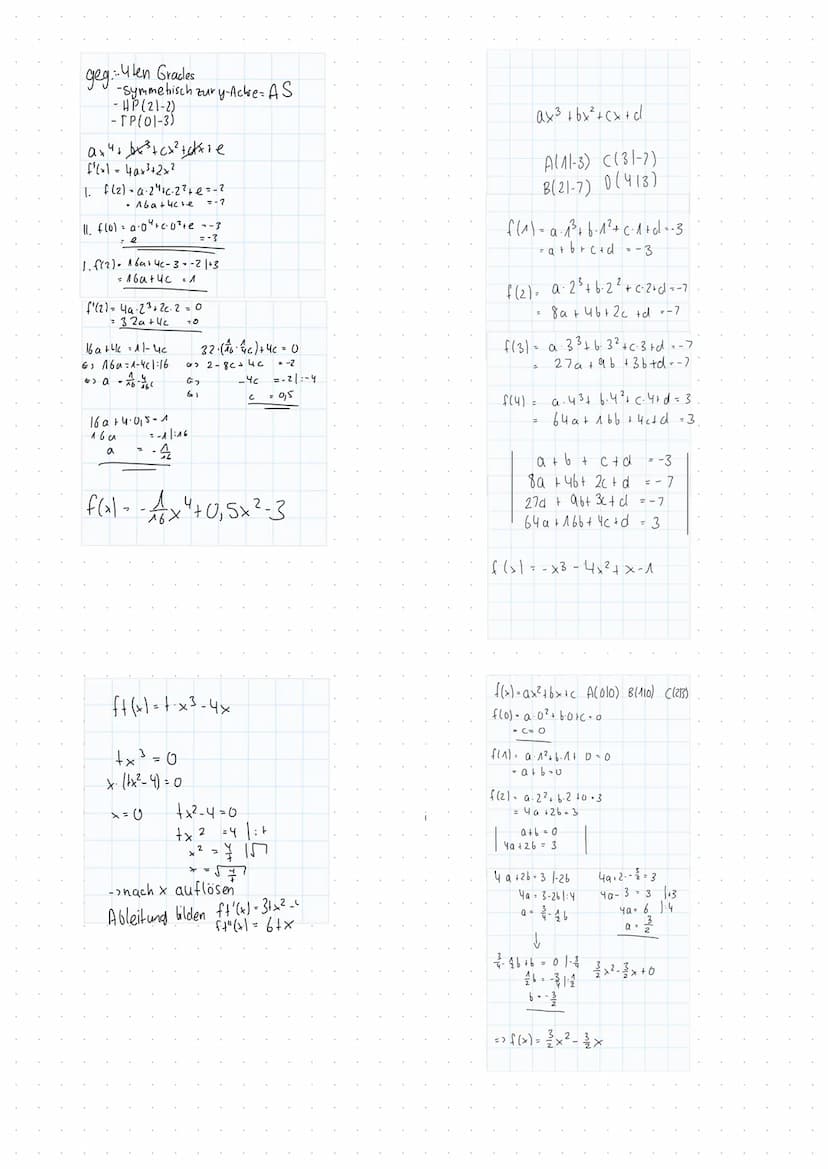 geg.: -4ten Grades
-symmetrisch zur y-Achse = AS
- HP(2|-2)
- TP(0|-3)
ax⁴ + bx³ + cx² + dx + e
f'(x) = 4ax³+2x²
I. f(2) = a·2⁴+c·2²+e = -2
= 16a+4c+e = -2
II. f(0) = a·0⁴+c·0²+e = -3
= e = -3
I. f(2) = 16a+4c-3 = -2 |+3
= 16a+4c = 1
f'(2) = 4a·2³+2c·2 = 0
= 32a+4c = 0
16a+4c = 1 |-4c
<=> 16a = 1-4c |:16
<=> a = 1/16 - 4/16c
32·(1/16 - 4/16c)+4c = 0
<=> 2-8c+4c = -2
<=> -4c = -2 |:-4
<=> c = 0,5
16a+4·0,5 = 1
16a = -1 |:16
a = -1/16
f(x) = -1/16x⁴+0,5x²-3
ax³+bx²+cx+d
A(1|-3) C(3|-7)
B(2|-7) D(4|3)
f(1) = a·1³+b·1²+c·1+d = -3
= a+b+c+d = -3
f(2) = a·2³+b·2²+c·2+d = -7
= 8a+4b+2c+d = -7
f(3) = a·3³+b·3²+c·3+d = -7
= 27a+9b+3b+d = -7
f(4) = a·4³+b·4²+c·4+d = 3
= 64a+16b+4c+d = 3
a + b + c+d = -3
8a +4b+ 2c+d = -7
27a + 9b+3c+d = -7
64a+16b+4c+d = 3
f(x) = -x³-4x²+x-1
ft(x) = t·x³-4x
tx³ = 0
x·(tx²-4) = 0
x = 0 tx²-4 = 0
tx² = 4 |:t
x² = 4/t |√
x = √4/t
-> nach x auflösen
Ableitung bilden ft'(x) = 3tx²-4
ft''(x) = 6tx
f(x) = ax²+bx+c A(0|0) B(1|0) C(2|3)
f(0) = a·0²+b·0+c = 0
= c = 0
f(1) = a·1²+b·1+0 = 0
= a+b = 0
f(2) = a·2²+b·2+0 = 3
= 4a+2b = 3
a+b = 0
4a+2b = 3
4a+2b = 3 |-2b
4a = 3-2b |:4
a = 3/4 - 1/2b
↓
3/4 - 1/2b+b = 0 |-3/4
1/2b = -3/4 |:1/2
b = -3/2
4a+2·-3/2 = 3
4a-3 = 3 |+3
4a = 6 |:4
a = 3/2
3/2x²-3/2x+0
=> f(x) = 3/2x² - 3/2x